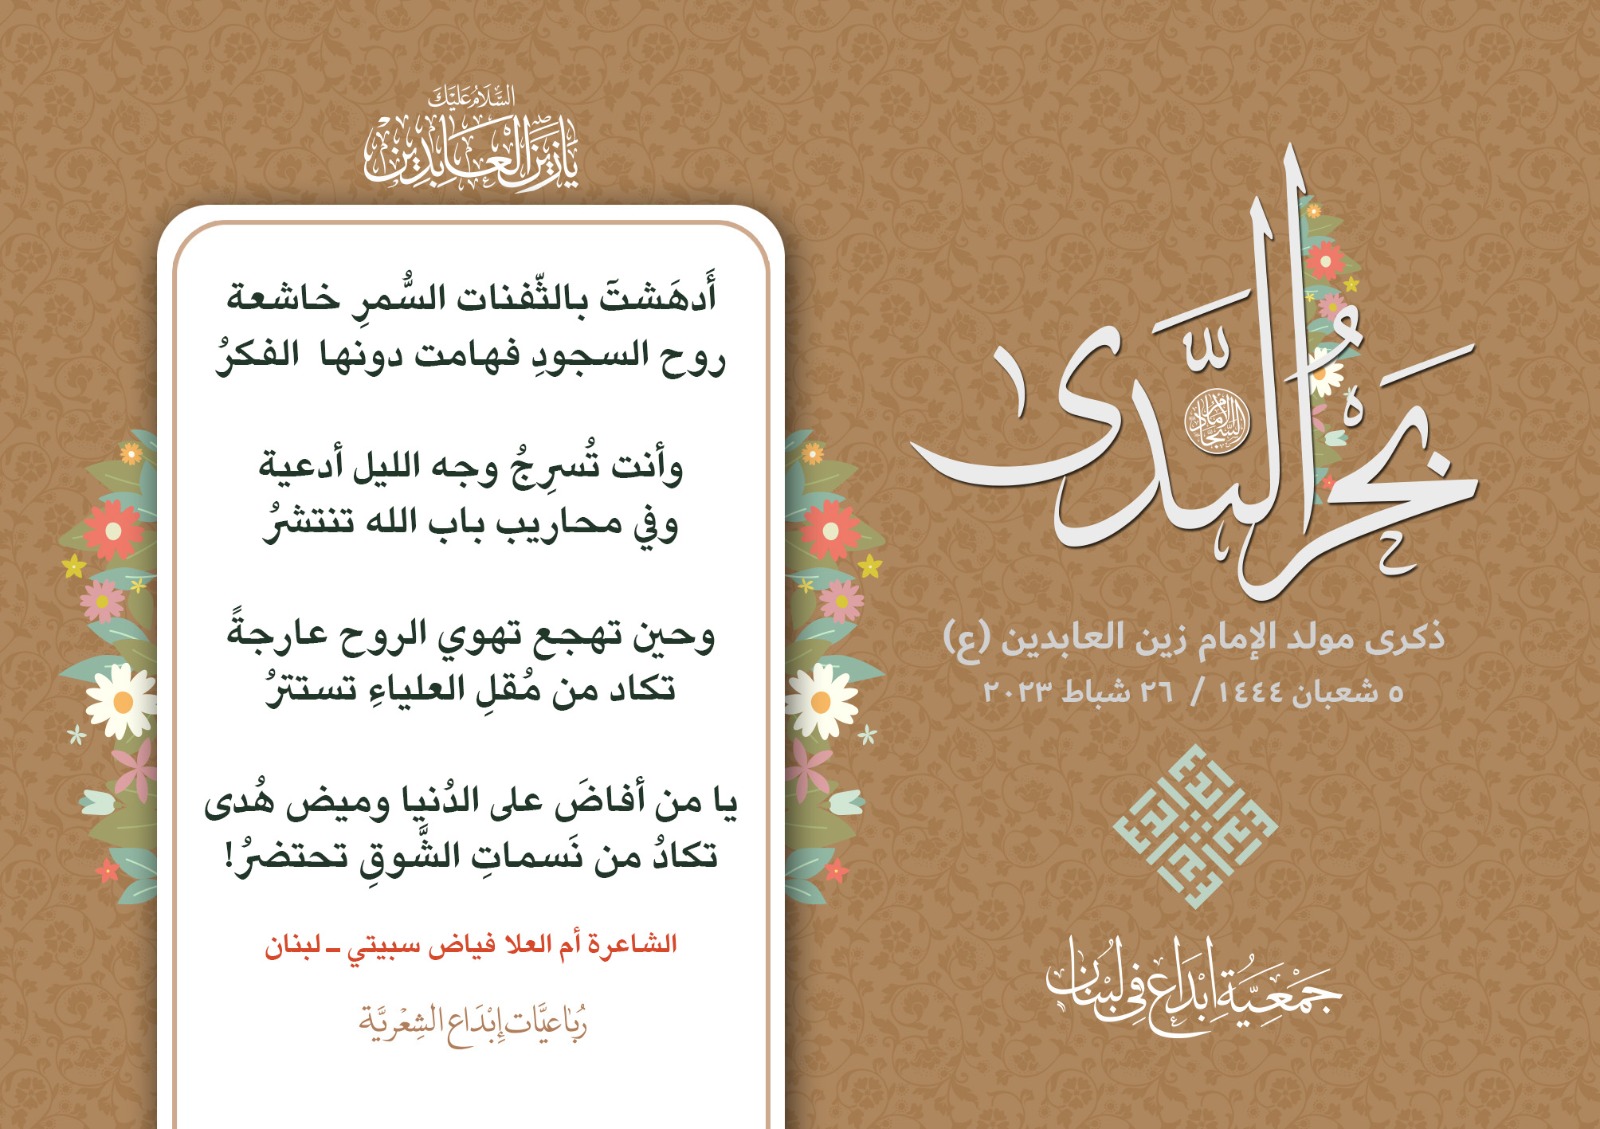 بحر الندى
الإمام السجاد
ذكرى مولد الإمام زين العابدين (ع)
٥ شعبان ١٤٤٤ / ٢٦ شباط ٢٠٢٣
إبداع
جَمْعِيَّة إِبْدَاع فِي لُبْنَان
السَّلَامُ عَلَيْكَ
يَا زَيْنَ الْعَابِدِينَ
أَدهَشتَ بالثّفنات السُّمرِ خاشعة
روح السجودِ فهامت دونها الفكرُ
وأنت تُسرِجُ وجه الليل أدعية
وفي محاريب باب الله تنتشرُ
وحين تهجع تهوي الروح عارجةً
تكاد من مُقلِ العلياءِ تستترُ
يا من أفاضَ على الدُنيا وميض هُدى
تكادُ من نَسماتِ الشَّوقِ تحتضرُ!
الشاعرة أم العلا فياض سبيتي ـ لبنان
رُبَاعيَّات إِبْدَاع الشِعْريَّة